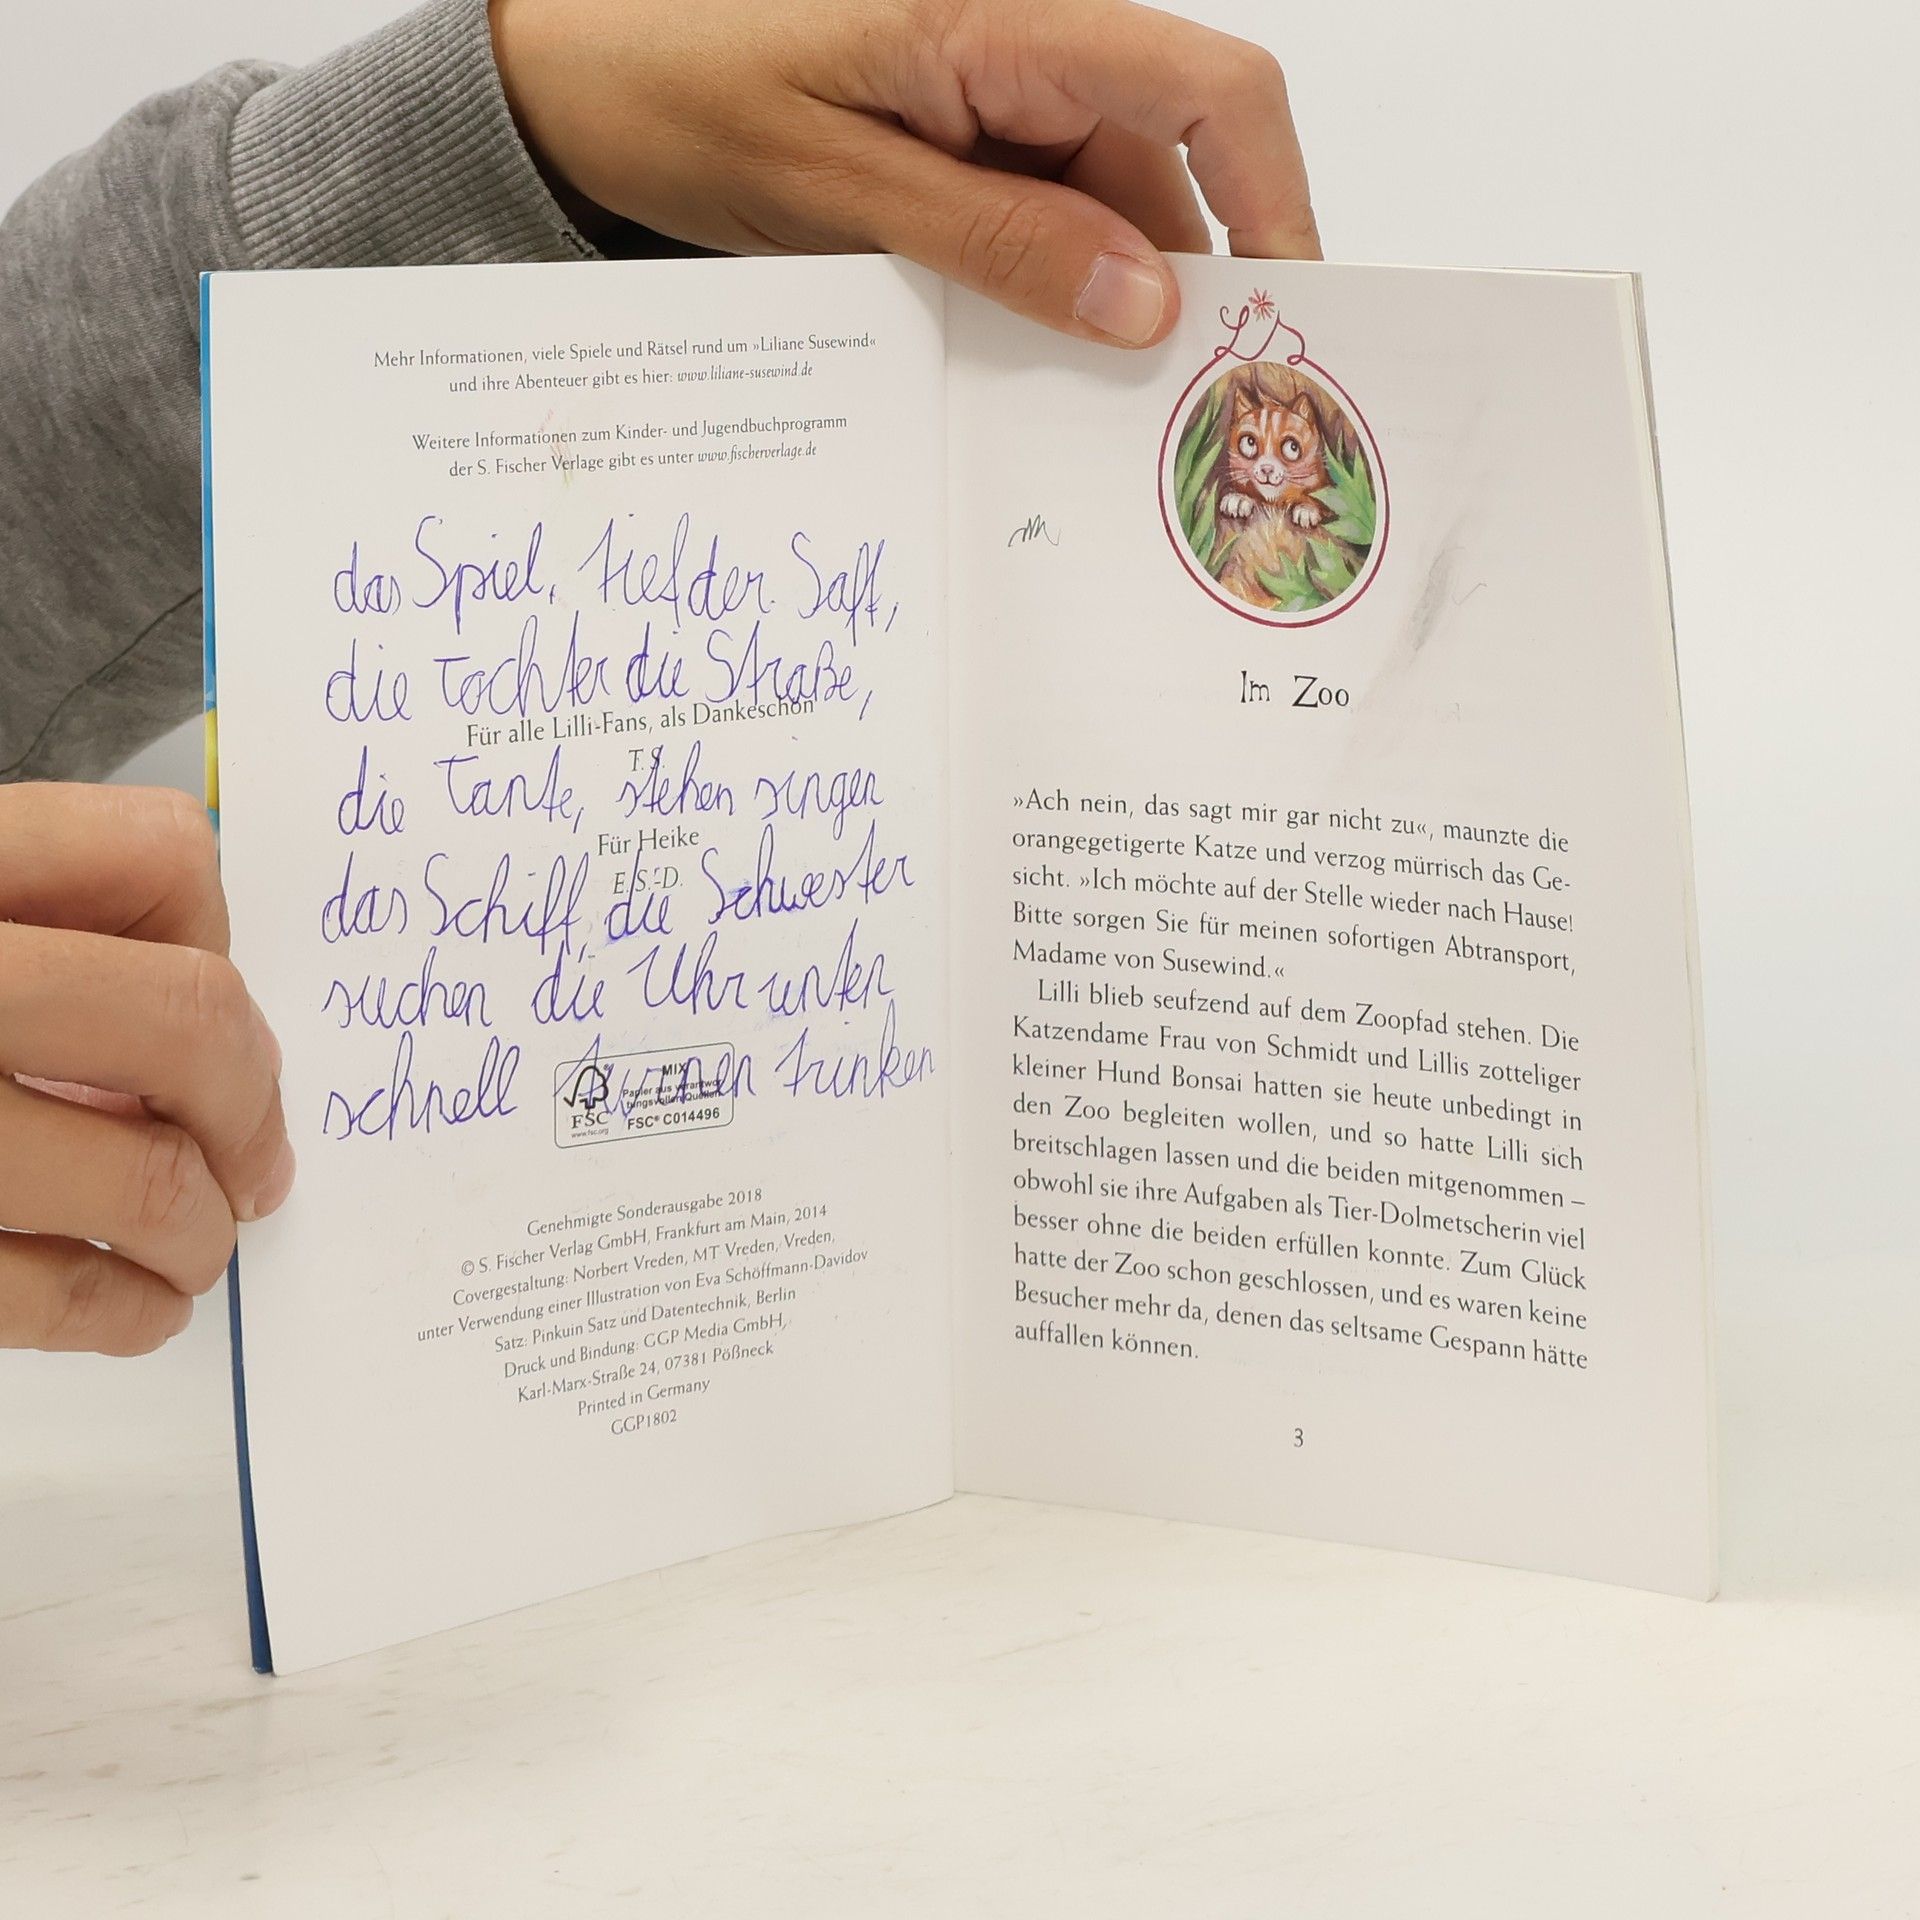 Mehr Informationen, viele Spiele und Rätsel rund um »Liliane Susewind«
und ihre Abenteuer gibt es hier: www.liliane-susewind.de
Weitere Informationen zum Kinder- und Jugendbuchprogramm
der S. Fischer Verlage gibt es unter www.fischerverlage.de
das Spiel, tief der Saft,
die Tochter die Straße,
Für alle Lilli-Fans, als Dankeschön
T. S.
die Tante, stehen singen
Für Heike
E. S.-D.
das Schiff, die Schwester
suchen die Uhr unten
schnell turnen trinken
FSC
www.fsc.org
MIX
Papier aus verantwor-
tungsvollen Quellen
FSC® C014496
Genehmigte Sonderausgabe 2018
© S. Fischer Verlag GmbH, Frankfurt am Main, 2014
Covergestaltung: Norbert Vreden, MT Vreden, Vreden,
unter Verwendung einer Illustration von Eva Schöffmann-Davidov
Satz: Pinkuin Satz und Datentechnik, Berlin
Druck und Bindung: GGP Media GmbH,
Karl-Marx-Straße 24, 07381 Pößneck
Printed in Germany
GGP1802
Im Zoo
»Ach nein, das sagt mir gar nicht zu«, maunzte die
orangegetigerte Katze und verzog mürrisch das Ge-
sicht. »Ich möchte auf der Stelle wieder nach Hause!
Bitte sorgen Sie für meinen sofortigen Abtransport,
Madame von Susewind.«
Lilli blieb seufzend auf dem Zoopfad stehen. Die
Katzendame Frau von Schmidt und Lillis zotteliger
kleiner Hund Bonsai hatten sie heute unbedingt in
den Zoo begleiten wollen, und so hatte Lilli sich
breitschlagen lassen und die beiden mitgenommen –
obwohl sie ihre Aufgaben als Tier-Dolmetscherin viel
besser ohne die beiden erfüllen konnte. Zum Glück
hatte der Zoo schon geschlossen, und es waren keine
Besucher mehr da, denen das seltsame Gespann hätte
auffallen können.
3